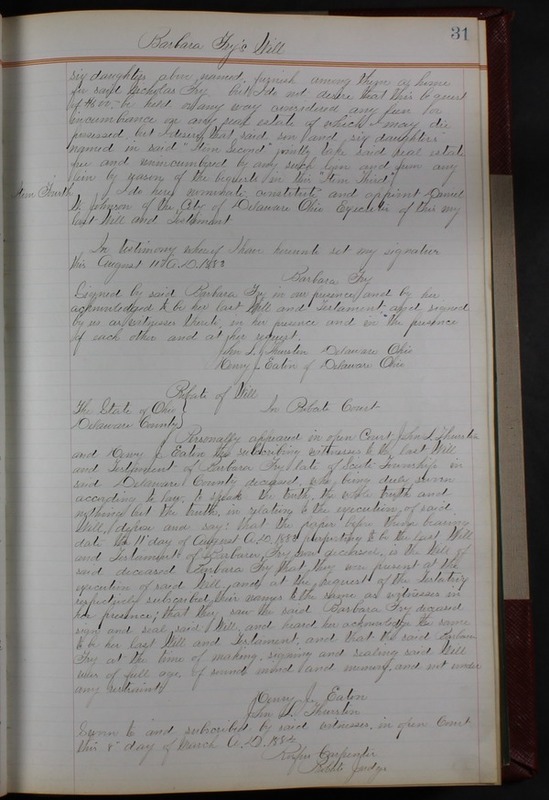 31
Barbara Fry's Will
six daughters above named, furnish among them a home
for said Nicholas Fry but I do not desire that this bequest
of be held in any way considered any lien or
incumbrance on any real estate of which I may die
possessed, but I desire that said son and six daughters
named in said "Item Second" jointly take said real estate
free and unincumbered by any such lien and from any
lien by reason of the bequests in this "Item Third."
Item Fourth I do here nominate constitute and appoint Daniel
Johnson of the City of Delaware Ohio Executor of this my
last Will and Testament
In testimony whereof I have hereunto set my signature
this August 11th A.D. 1882
Barbara Fry
Signed by said Barbara Fry in our presence and by her
acknowledged to be her last Will and Testament, and signed
by us as witnesses thereto, in her presence and in the presence
of each other and at her request.
John S. Thurston Delaware Ohio
Henry J. Eaton of Delaware Ohio
Probate of Will
The State of Ohio } In Probate Court
Delaware County
Personally appeared in open Court John S. Thurston
and Henry J. Eaton the subscribing witnesses to the last Will
and Testament of Barbara Fry late of Scioto Township in
said Delaware County deceased, who, being duly sworn
according to law, to speak the truth, the whole truth and
nothing but the truth, in relation to the execution of said
Will, depose and say: that the paper before them bearing
date the 11" day of August A.D. 1882 purporting to be the last Will
and Testament of Barbara Fry now deceased, is the Will of
said deceased Barbara Fry that they were present at the
execution of said Will, and at the request of the Testatrix
respectively subscribed their names to the same as witnesses in
her presence; that they saw the said Barbara Fry deceased
sign and seal said Will, and heard her acknowledge the same
to be her last Will and Testament, and that the said Barbara
Fry at the time of making, signing and sealing said Will
was of full age, of sound mind and memory, and not under
any restraint.
Henry J. Eaton
John S. Thurston
Sworn to and subscribed by said witnesses, in open Court
this 8" day of March A.D.
Rufus Carpenter
Probate Judge